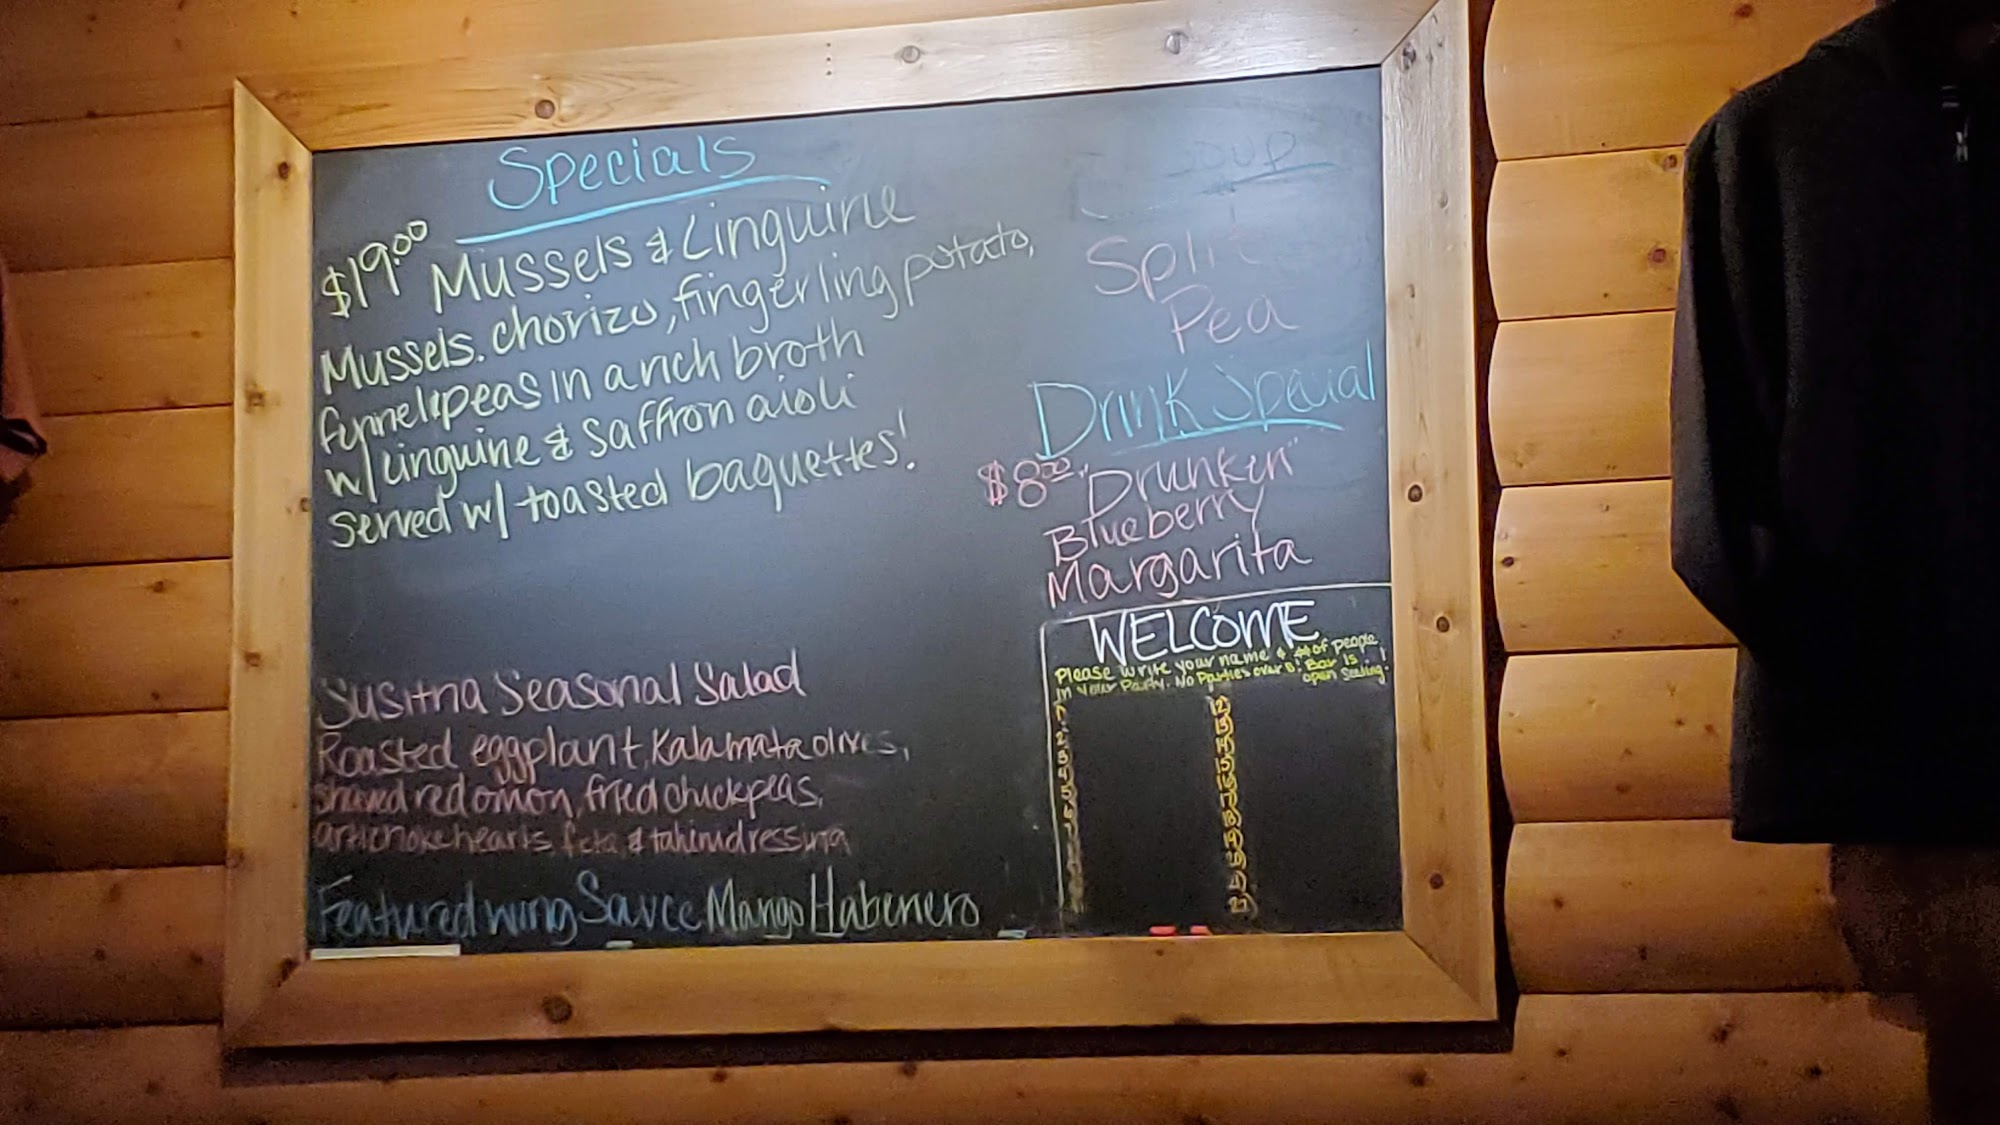 Specials
$19.00 Mussels & Linguine
Mussels. chorizo, fingerling potato,
fennel & peas in a rich broth
w/ Linguine & saffron aioli
served w/ toasted baguettes!
Susitna Seasonal Salad
Roasted eggplant, Kalamata olives,
shaved red onion, fried chickpeas,
artichoke hearts, feta, & tahini dressing
Featured wing Sauce Mango Habenero
Soup
Split
Pea
Drink Special
$8.00 "Drunken"
Blueberry
Margarita
WELCOME
Please write your name & # of people
in your Party. No Parties over 8! Bar is
open seating!
1
2
3
4
5
6
7
12)
13)
14)
15)
16)
17)
18)
19)